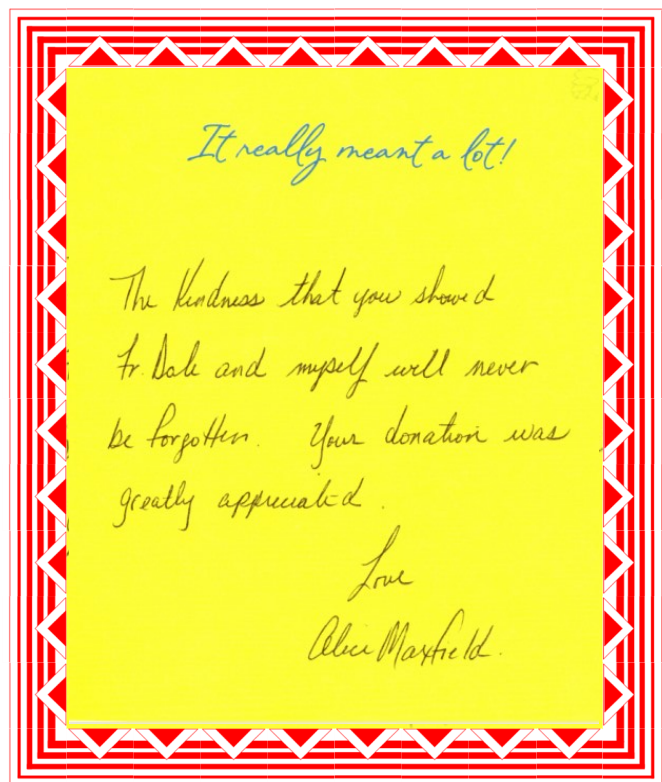 It really meant a lot!
The Kindness that you showed
Fr. Dale and myself will never
be forgotten. Your donation was
greatly appreciated.
Love
Alice Maxfield.